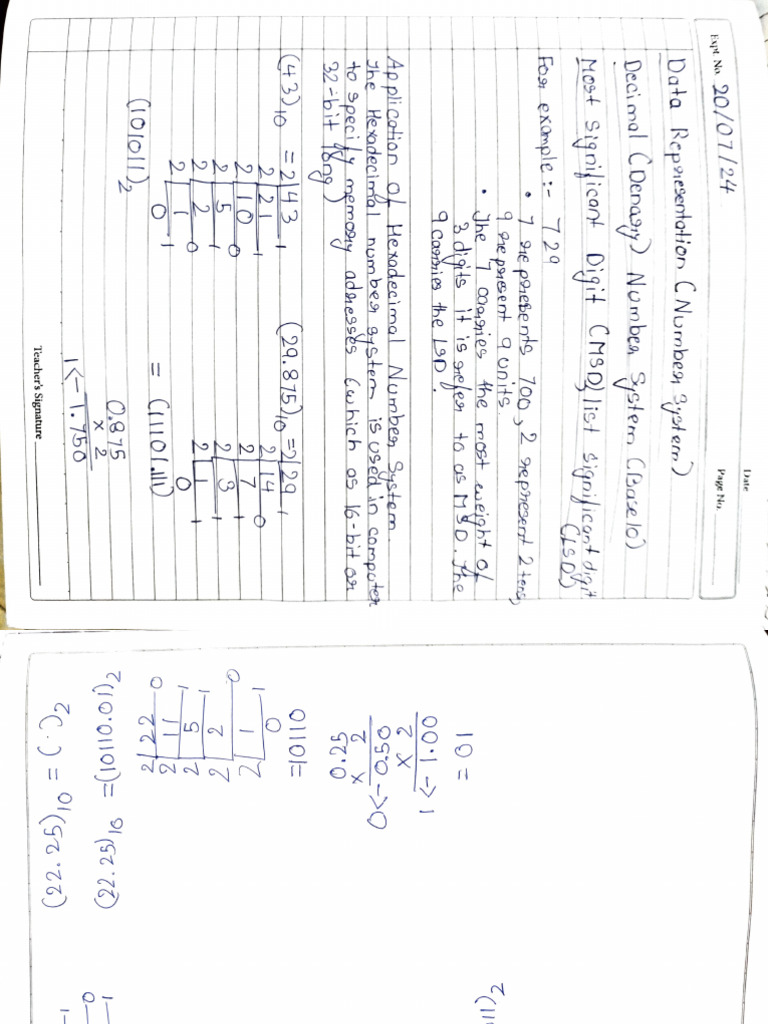 Date
Expt. No. 20/07/24
Page No.
Data Representation (Number System)
Decimal (Denary) Number System (Base 10)
Most Significant Digit (MSD) list significant digit
(LSD)
For example :- 729
• 7 represents 700, 2 represent 2 tens,
9 represent 9 units.
• The 7 carries the most weight of
3 digits it is refer to as MSD. The
9 carries the LSD.
Application of Hexadecimal Number System.
The Hexadecimal number system is used in computer
to specify memory adresses (which as 16-bit or
32-bit long)
(43)10 = 2|43
2|21 1
2|10 1
2|5 0
2|2 1
2|1 0
0 1
(101011)2
(29.875)10 = 2|29
2|14 1
2|7 0
2|3 1
2|1 1
0 1
= (11101.111)
0.875
x 2
1<- 1.750
Teacher's Signature
(22.25)10 = (.)2
(22.25)10 = (10110.01)2
2|22 0
2|11 1
2|5 1
2|2 0
2|1 1
0
=10110
0.25
x 2
0<- 0.50
x 2
1<- 1.00
= 01
11)2